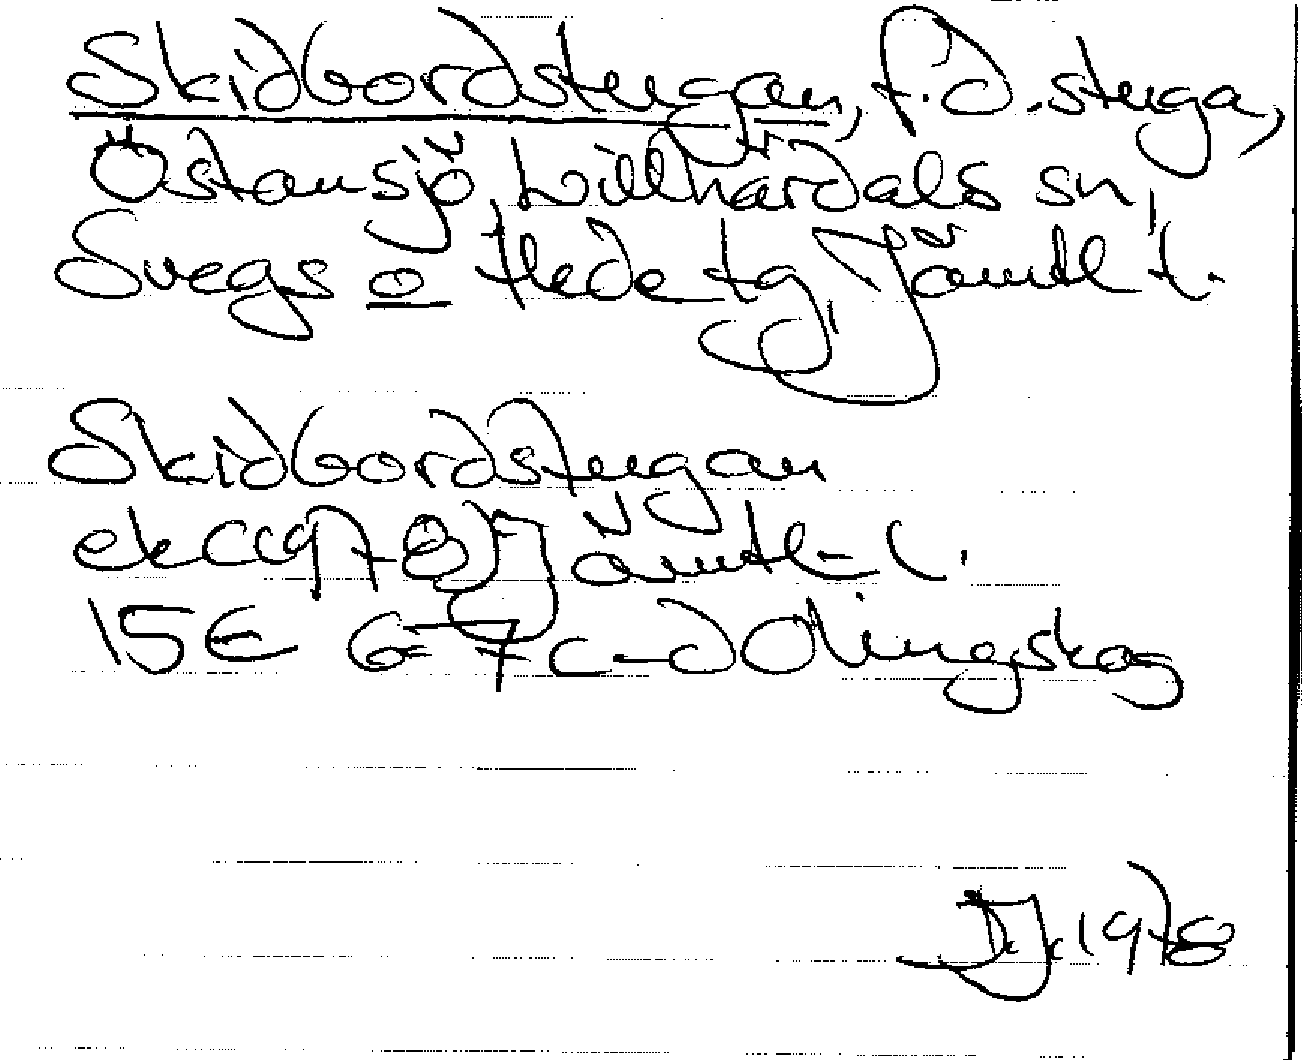 Skidbordstugan, f.d. stuga,
Östansjö, Lillhärdals sn,
Svegs o Hede tg, Jämtl l.
Skidbordstugan
ek (1978) Jämtl l.
15E 6-7 c-d Olingskog
DJ. 1978